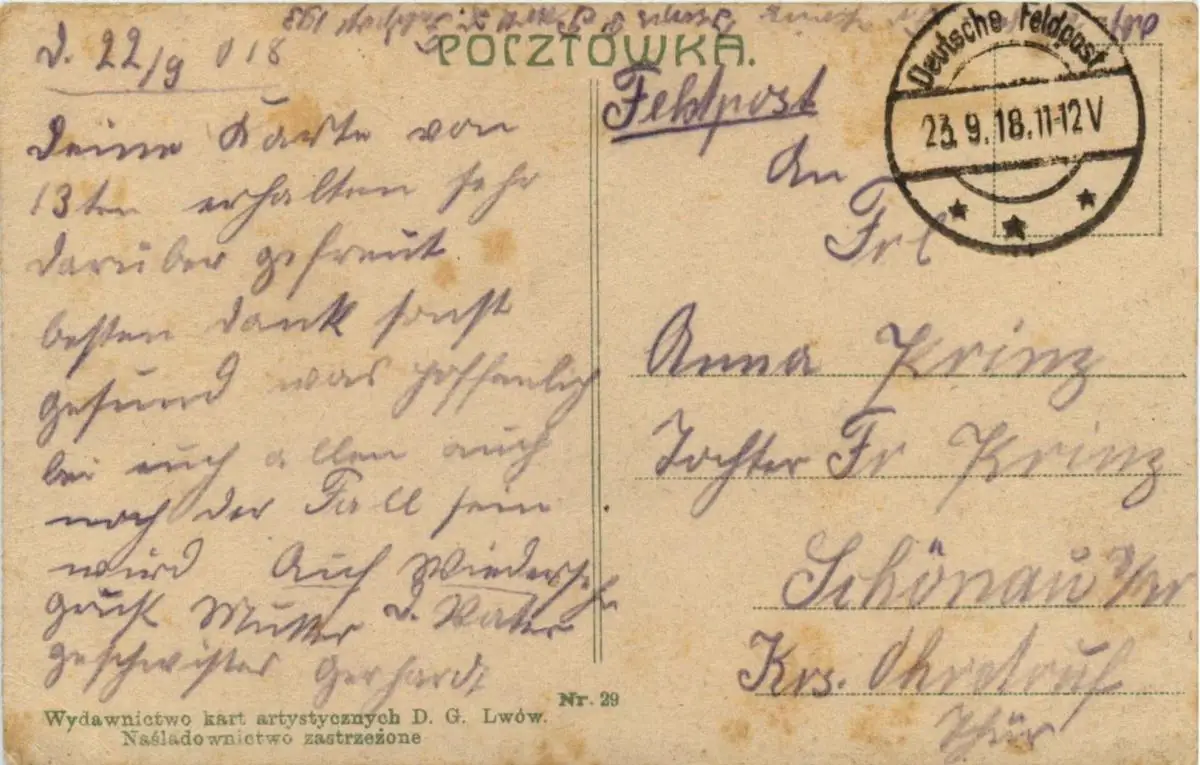 POCZTÓWKA.
d. 22/9 018
Deine Karte von
13ten erhalten sehr
darüber gefreut
besten Dank sonst
gesund was hoffenlich
bei euch allen auch
noch der Fall sein
wird Auf Wiedersehn
grüst Mutter u. Vater
geschwister Gerhardt
Nr. 29
Wydawnictwo kart artystycznych D. G. Lwów.
Naśladownictwo zastrzeżone
Feldpost
Deutsche Feldpost
23.9.18.11-12V
An
Frl
Anna Prinz
Tochter Fr Prinz
Schönau
Krs. Ohrdruf
Thür